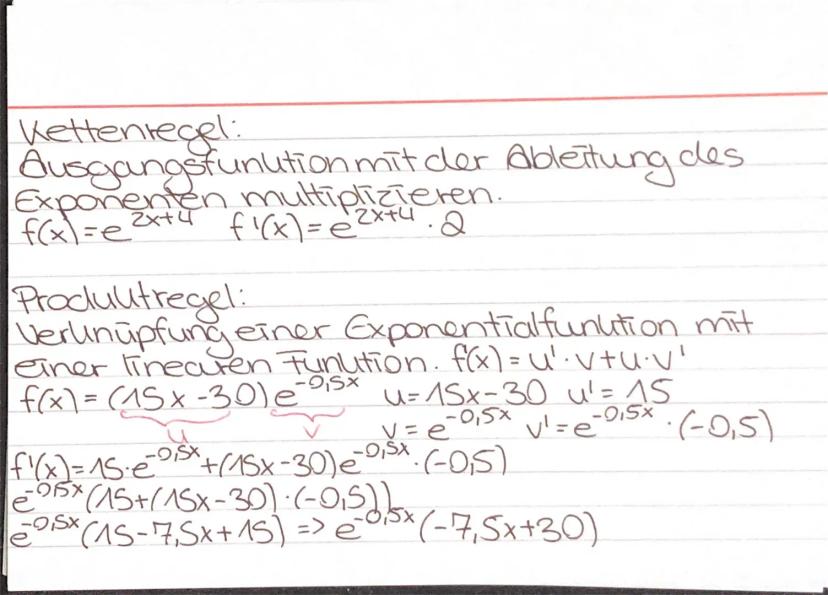 Kettenregel:
Ausgangsfunktion mit der Ableitung des
Exponenten multiplizieren.
f(x) = e^2x+4 f'(x) = e^2x+4 · 2
Produktregel:
Verknüpfung einer Exponentialfunktion mit
einer linearen Funktion. f(x) = u' · v + u · v'
f(x) = (15x - 30) e^-0,5x u = 15x - 30 u' = 15
u v v = e^-0,5x v' = e^-0,5x · (-0,5)
f'(x) = 15 · e^-0,5x + (15x - 30) e^-0,5x · (-0,5)
e^-0,5x (15 + (15x - 30) · (-0,5))
e^-0,5x (15 - 7,5x + 15) => e^-0,5x (-7,5x + 30)